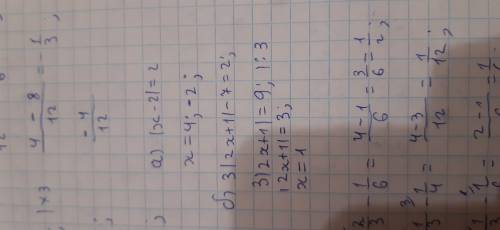 12
| × 3
4 - 8 / 12 = - 1/3 ;
- 4/12
;
а) |x-2| = 2
x = 4; -2;
б) 3|2x+1| - 7 = 2;
3|2x+1| = 9; | : 3
|2x+1| = 3;
x = 1
2/3 - 1/6 = 4-1/6 = 3/6 = 1/2;
1/3 - 1/4 = 4-3/12 = 1/12;